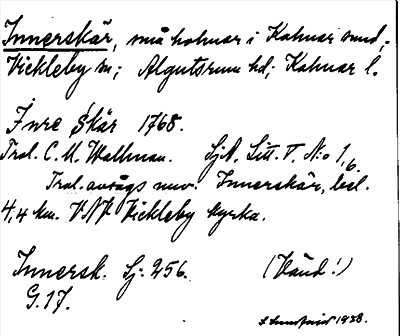 Innerskär, små holmar i Kalmar sund;
Vickleby sn; Algutsrum hd; Kalmar l.
Inre Skär 1768.
Trol. C. M. Wallman. SjA. Litt. V. N:o 1,6.
Trol. avságs nuv. Innerskär, bel.
4,4 km. VNV Vickleby kyrka.
Innersk. Sj: 256. (Vänd!)
G. 17.
1938.